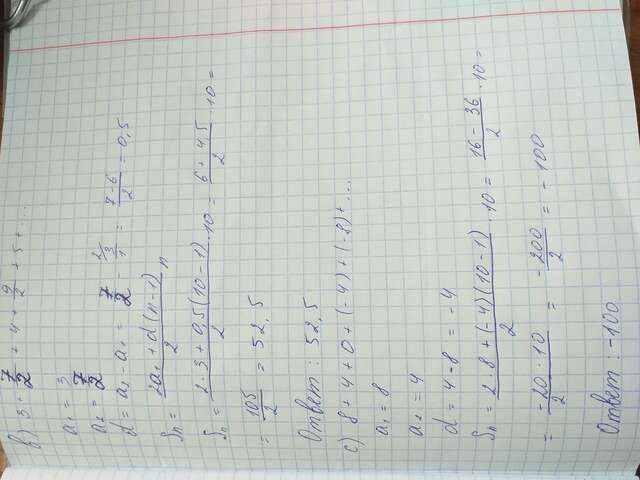 в) 3 + 7/2 + 4 + 9/2 + 5 + ...
a₁ = 3
a₂ = 7/2
d = a₂ - a₁ = 7/2 - 3/1 = (7-6)/2 = 0,5
Sₙ = (2a₁ + d(n-1))/2 n
Sₙ = (2·3 + 0,5(10-1))/2 · 10 = (6+4,5)/2 · 10 =
= 105/2 = 52,5
Ответ: 52,5
c) 8 + 4 + 0 + (-4) + (-8) + ...
a₁ = 8
a₂ = 4
d = 4 - 8 = -4
Sₙ = (2·8 + (-4)(10-1))/2 · 10 = (16-36)/2 · 10 =
= (-20·10)/2 = -200/2 = -100
Ответ: -100